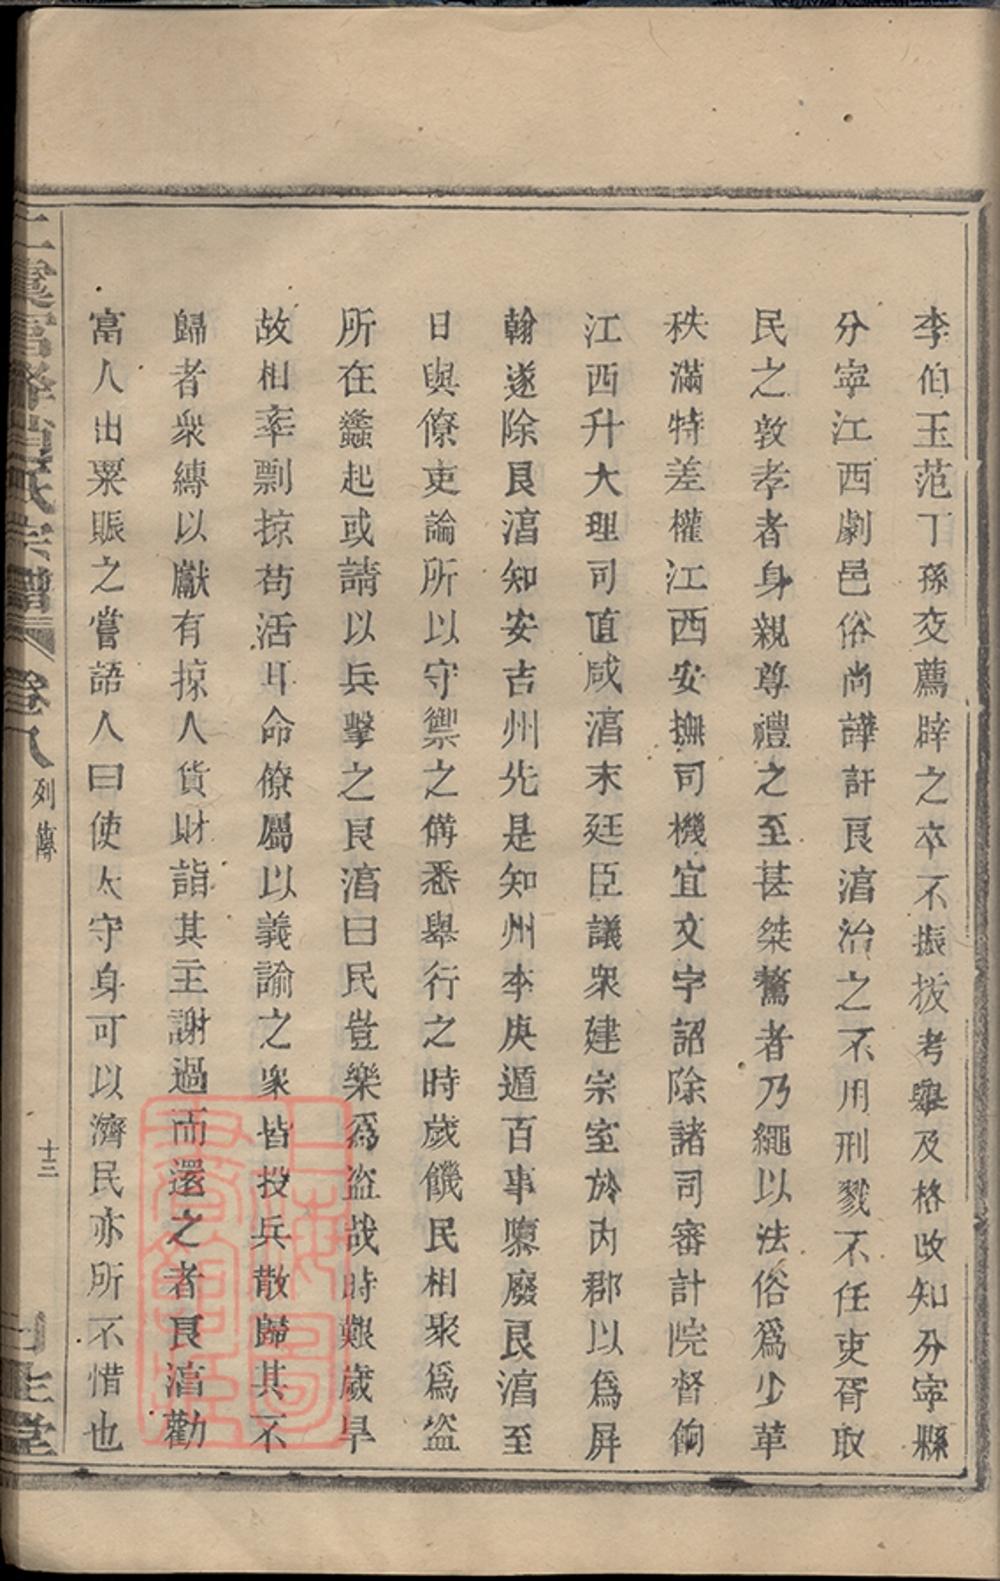 李伯玉范丁孫交薦辟之卒不振拔考舉及格改知分寧縣
分寧江西劇邑俗尚譁訐良淯治之不用刑戮不任吏胥取
民之敦孝者身親尊禮之至甚桀驁者乃繩以法俗爲少革
秩滿特差權江西安撫司機宜文字詔除諸司審計院督餉
江西升大理司直咸淯末廷臣議衆建宗室於內郡以爲屏
翰遂除良淯知安吉州先是知州李庚遁百事隳廢良淯至
日與僚吏論所以守禦之備悉舉行之時歲饑民相聚爲盜
所在蠭起或請以兵擊之良淯曰民豈樂爲盜哉時艱歲旱
故相率剽掠苟活耳命僚屬以義諭之衆皆投兵散歸其不
歸者衆縛以獻有掠人貨財詣其主謝過而還之者良淯勸
富人出粟賑之嘗語人曰使太守身可以濟民亦所不惜也
趙氏宗譜 卷八 列傳 十三